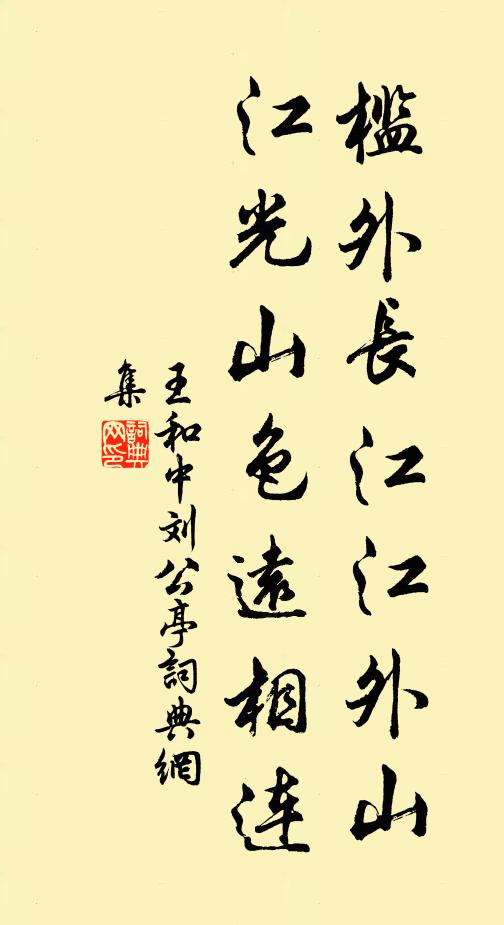 檻外長江江外山
江光山色遠相連
王和中刘公亭詞典網
集
詞典网印